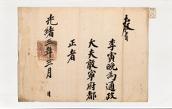 敎旨
李寅晩爲通政
大夫敦寧府都
正者
光緖三年三月 日